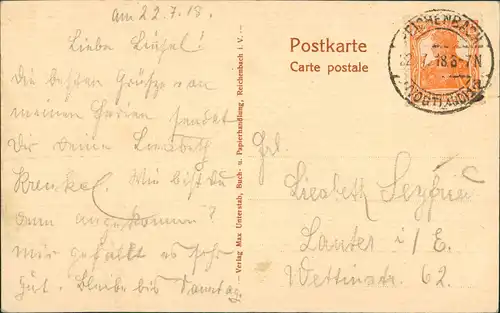 am 22.7.18.
Liebe Liesel!
Die besten Grüsse von
meinen Ferien sendet
Dir Deine Lisabeth
Krenkel. Wie bist Du
denn angekommen?
Mir gefällt es sehr
gut. Bleibe bis Sonntag.
– Verlag Max Unterstab, Buch- u. Papierhandlung, Reichenbach i. V. –
Postkarte
Carte postale
REICHENBACH
22.7.18.6-7N
(VOGTLAND)
Frl.
Lisabeth
Lauter i/E.
Wettinstr. 62.